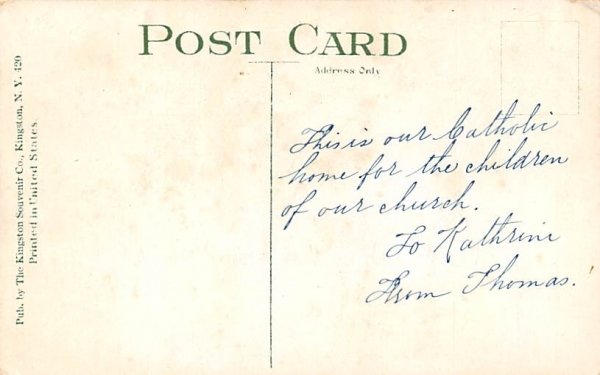 POST CARD
Address Only
Pub. by The Kingston Souvenir Co., Kingston, N. Y. 420
Printed in United States.
This is our Catholic
home for the children
of our church.
To Kathrini
From Thomas.